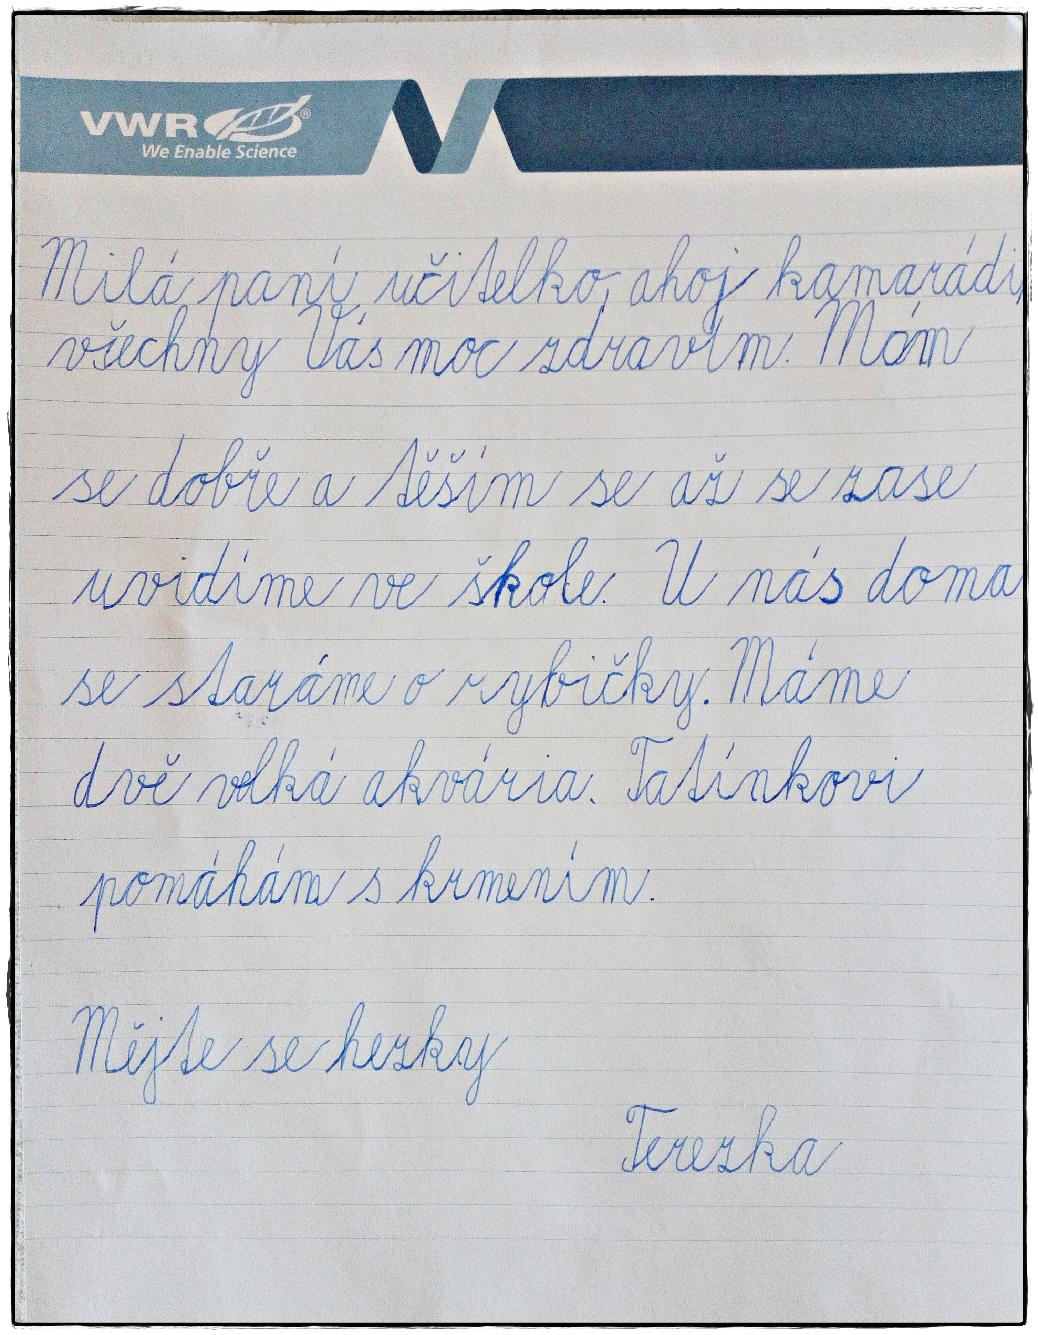 VWR®
We Enable Science
Milá paní učitelko, ahoj kamarádi,
všechny Vás moc zdravím. Mám
se dobře a těším se až se zase
uvidíme ve škole. U nás doma
se staráme o rybičky. Máme
dvě velká akvária. Tatínkovi
pomáhám s krmením.
Mějte se hezky
Terezka